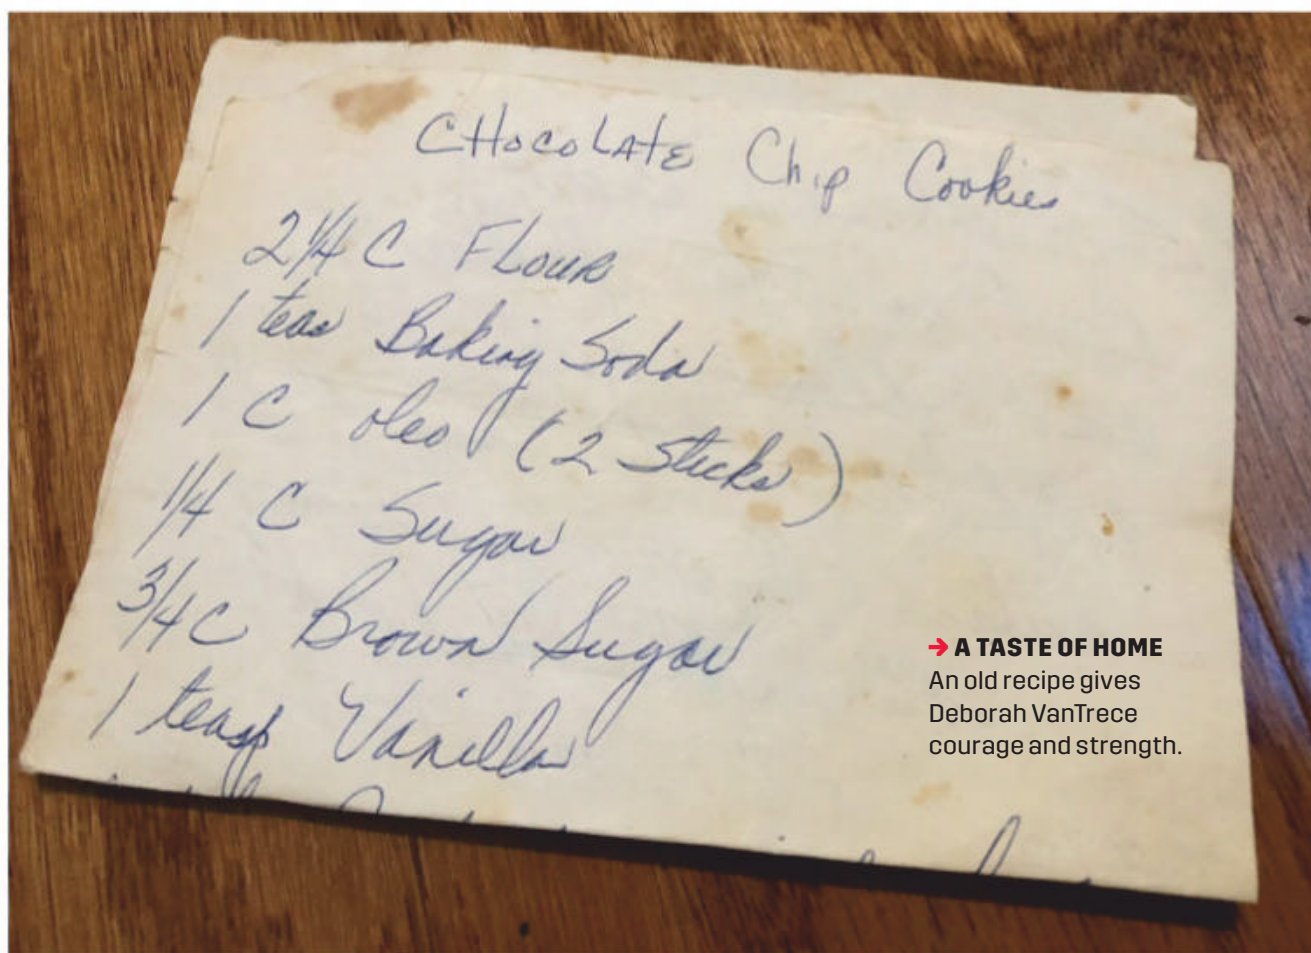 CHOCOLAtE Chip Cookies
2 1/4 C FLOUR
1 teas Baking Soda
1 C oleo (2 Sticks)
1/4 C Sugar
3/4 C Brown Sugar
1 teasp Vanilla
→ A TASTE OF HOME
An old recipe gives
Deborah VanTrece
courage and strength.